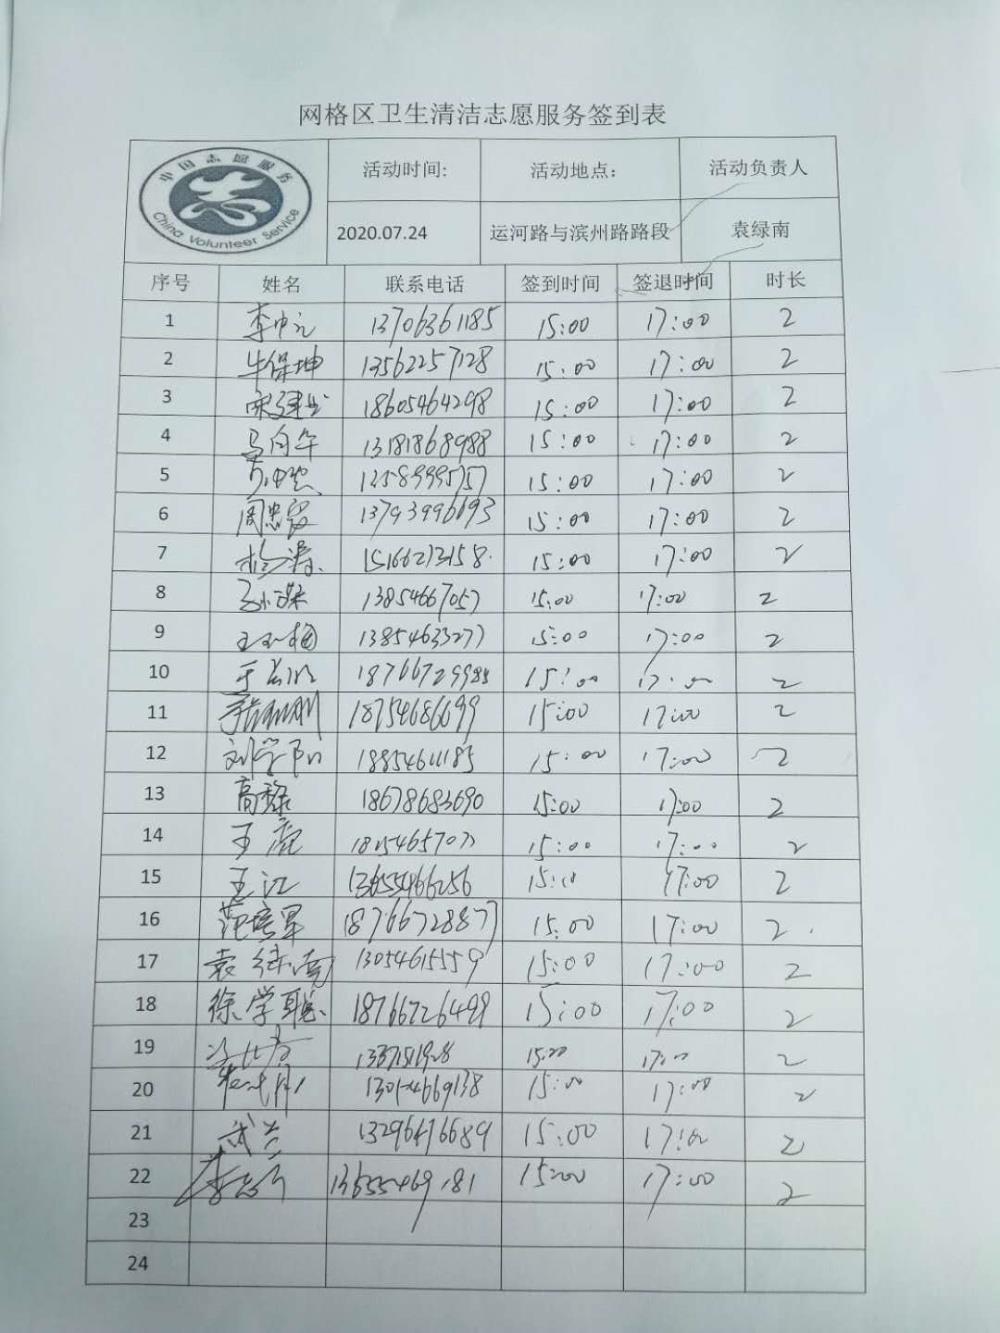 网格区卫生清洁志愿服务签到表
中国志愿服务
China Volunteer Service
活动时间: 活动地点: 活动负责人
2020.07.24 运河路与滨州路路段 袁绿南
序号 姓名 联系电话 签到时间 签退时间 时长
1 13706361185 15:00 17:00 2
2 牛保坤 13562257128 15:00 17:00 2
3 18605464298 15:00 17:00 2
4 马向华 13181868988 15:00 17:00 2
5 15:00 17:00 2
6 周忠富 15:00 17:00 2
7 杨涛 15166273158 15:00 17:00 2
8 13854667057 15:00 17:00 2
9 王玉梅 13854633277 15:00 17:00 2
10 18766729984 15:00 17:00 2
11 18754686699 15:00 17:00 2
12 刘学阳 18854611185 15:00 17:00 2
13 高静 18678683690 15:00 17:00 2
14 15:00 17:00 2
15 王江 13655466256 15:00 17:00 2
16 范培军 18766728877 15:00 17:00 2
17 袁绿南 13054615559 15:00 17:00 2
18 徐学聪 18766726499 15:00 17:00 2
19 15:00 17:00 2
20 15:00 17:00 2
21 武兰 13296476689 15:00 17:00 2
22 13655469181 15:00 17:00 2
23
24